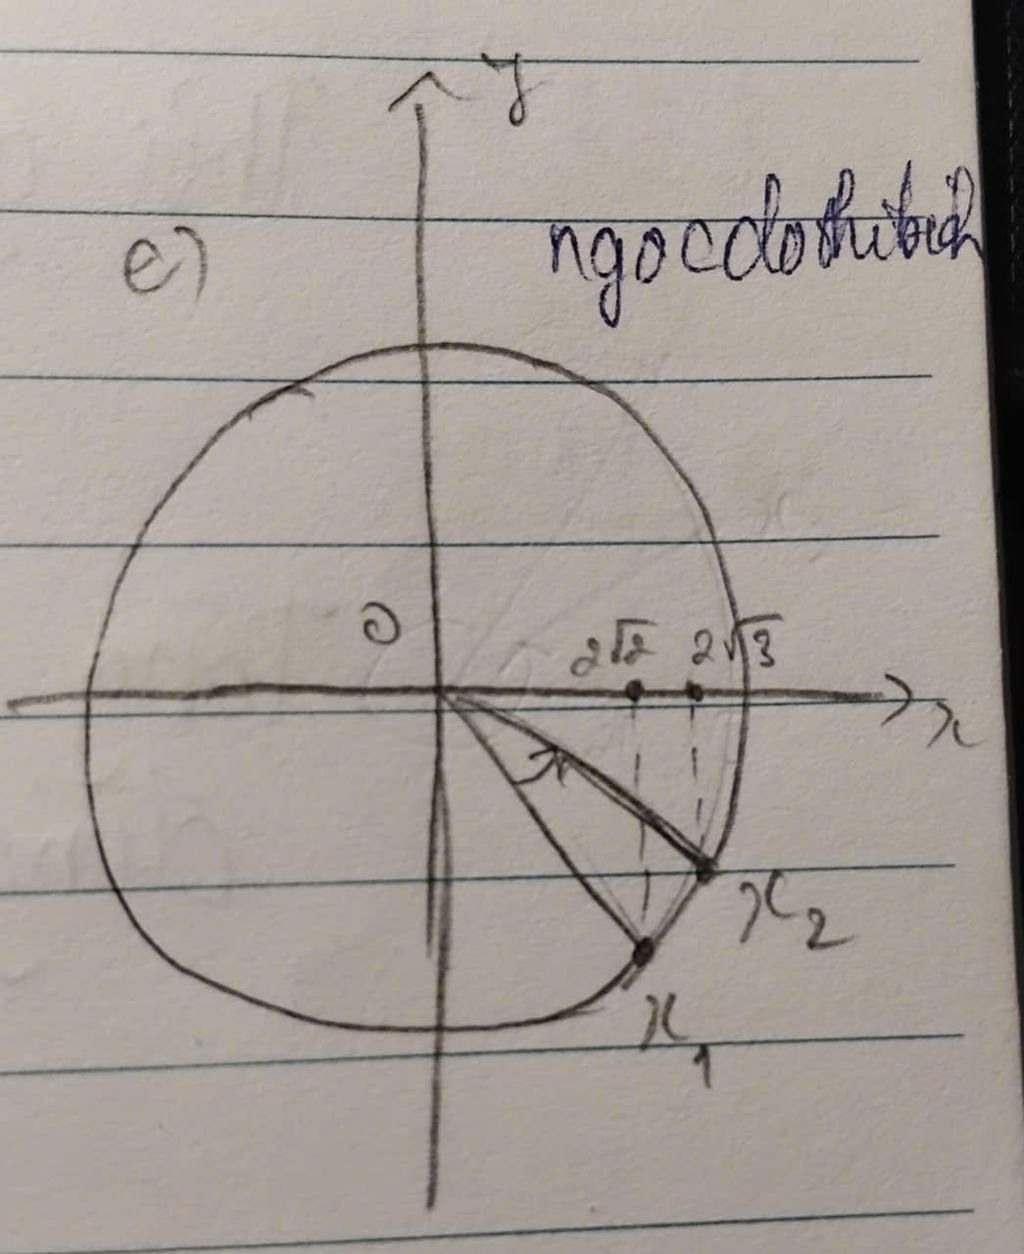 y
ngocdothibich
e)
O
2√2 2√3
x
x₂
x₁